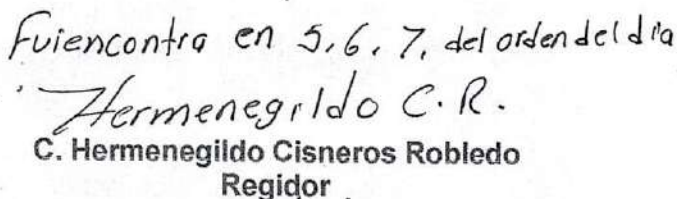 Fuiencontra en 5,6,7, del orden del dia
Hermenegildo C.R.
C. Hermenegildo Cisneros Robledo
Regidor